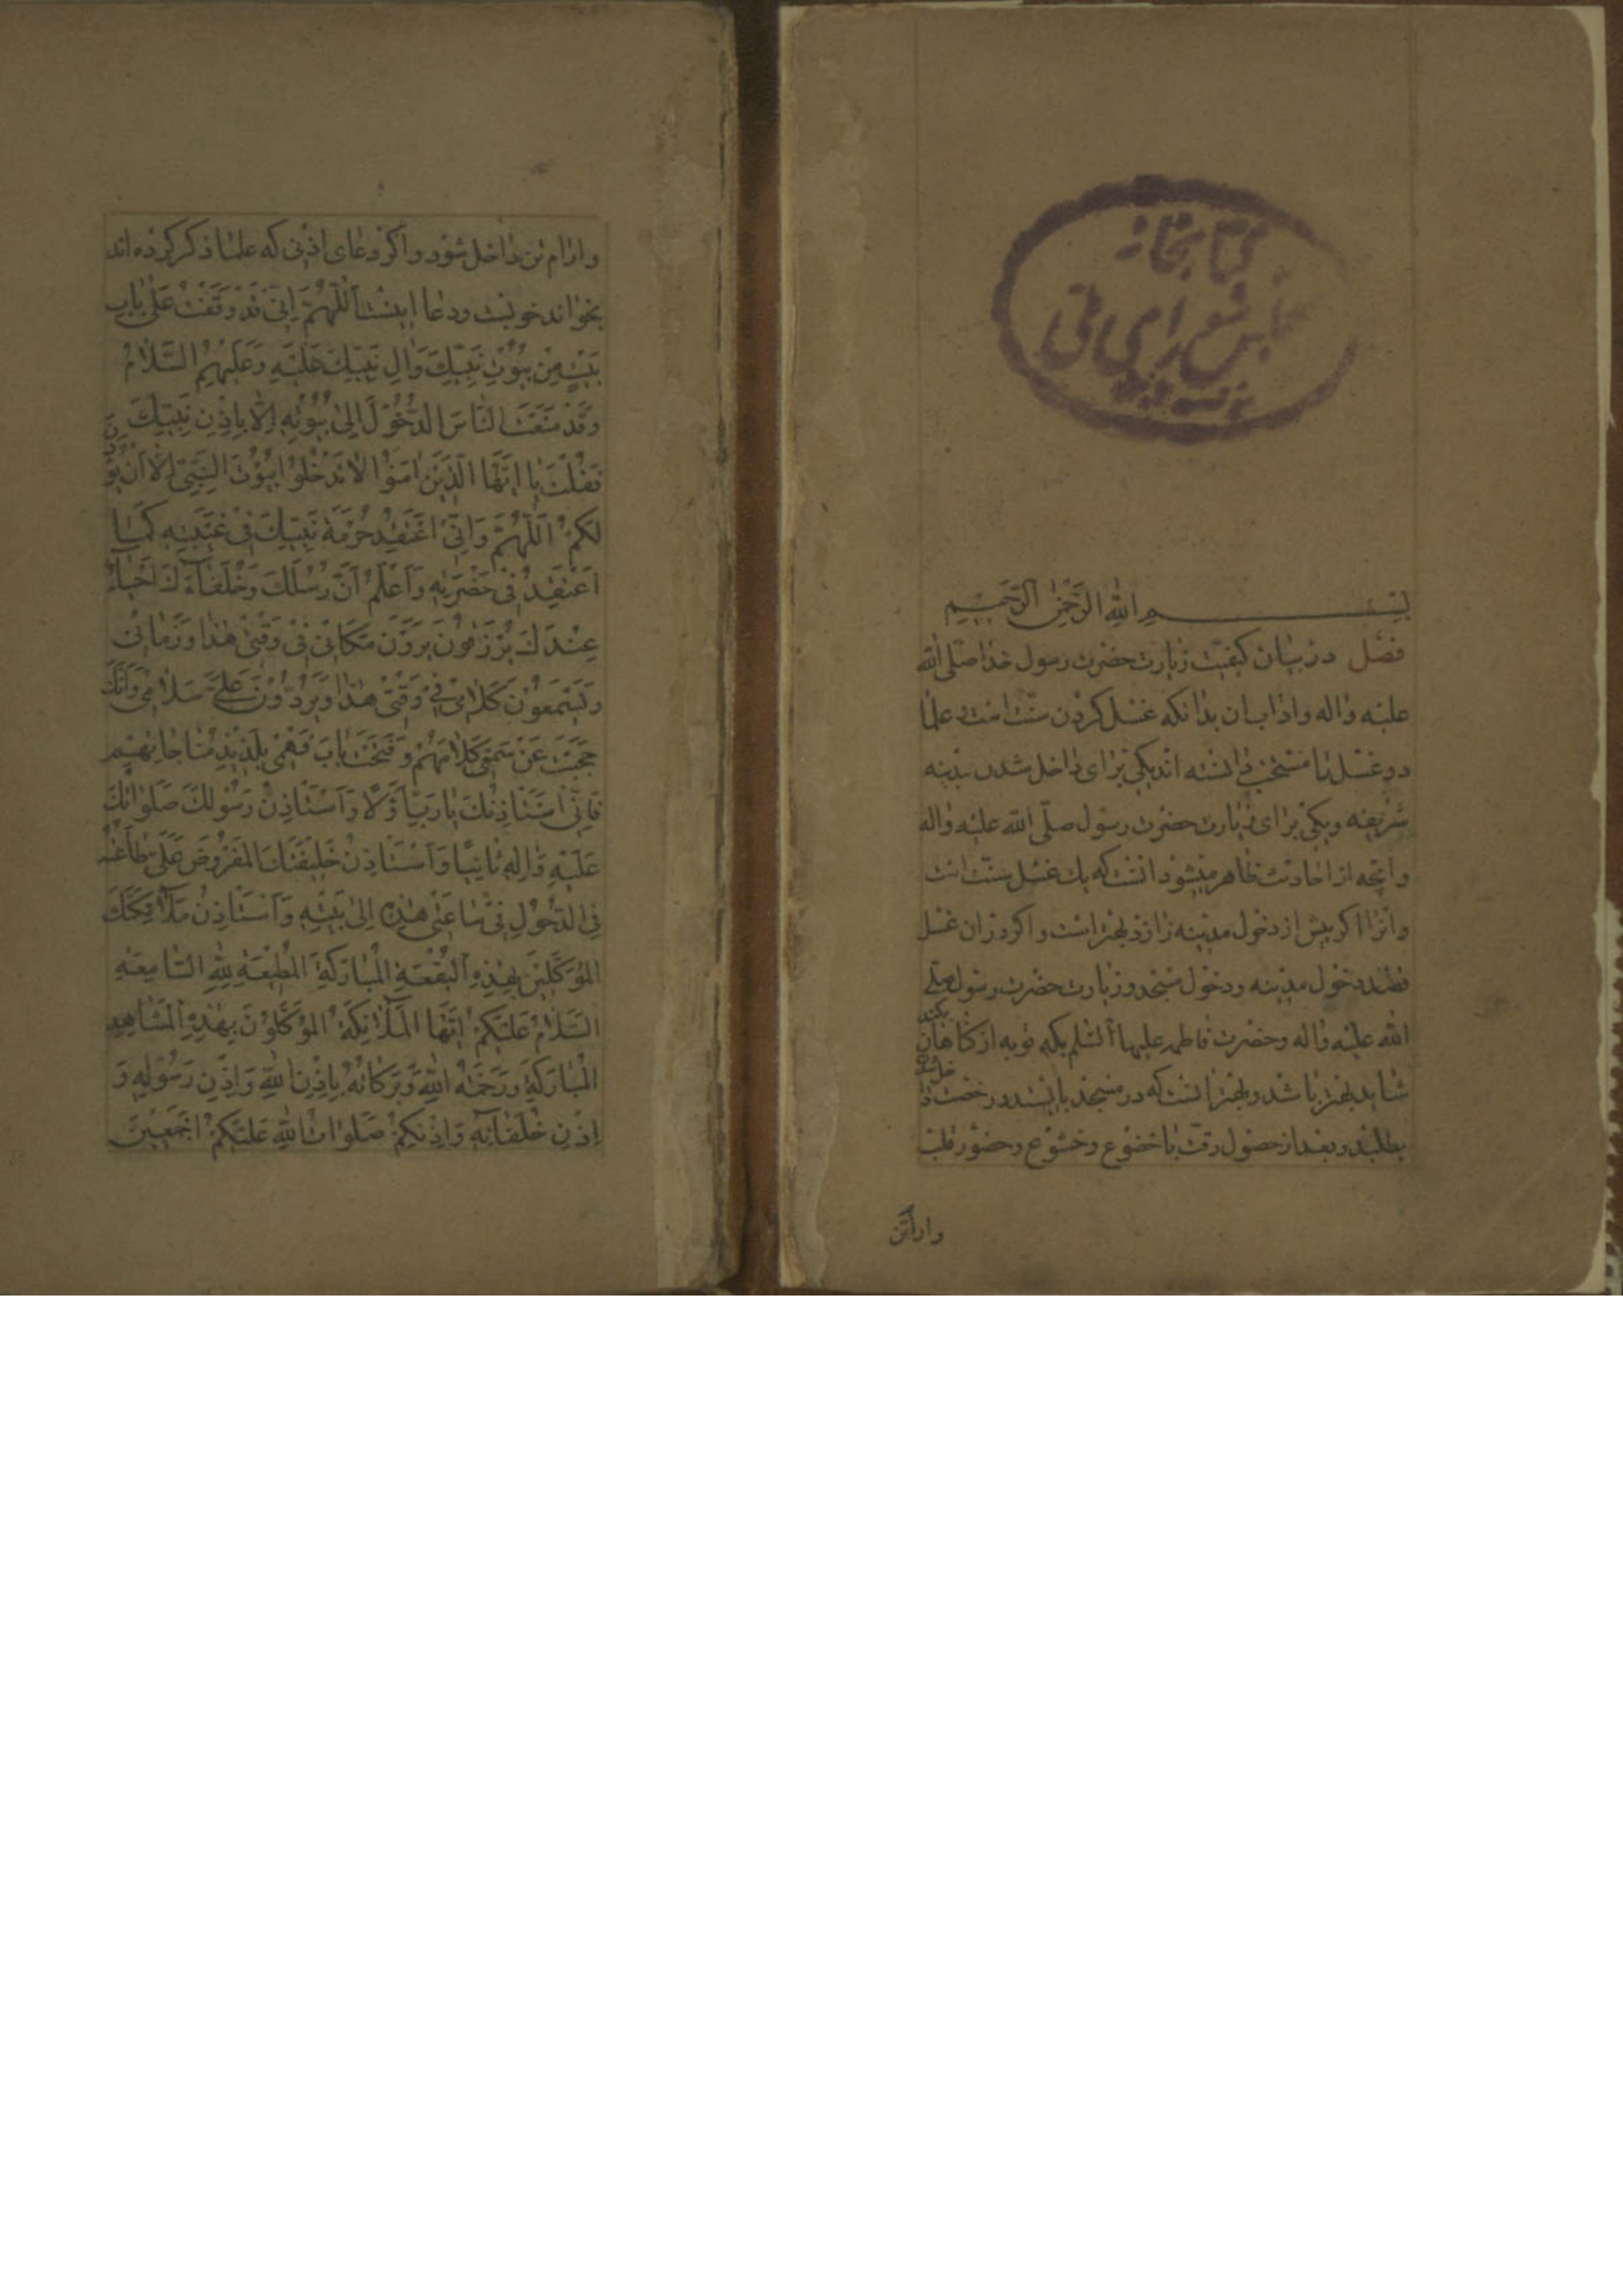 کتابخانه
مجلس شورای ملی
بسم الله الرحمن الرحیم
فصل در بیان کیفیت زیارت حضرت رسول خدا صلی الله
علیه واله واداب ان بدانکه غسل کردن سنت است و علما
دو غسل را مستحب دانسته اند یکی برای داخل شدن مدینه
شریفه ویکی برای زیارت حضرت رسول صلی الله علیه واله
وانچه از احادیث ظاهر میشود انست که یک غسل سنت است
وانرا اکر پیش از دخول مدینه
قصد دخول مدینه ودخول مسجد وزیارت حضرت رسول صلی
الله علیه واله وحضرت فاطمه علیها السلم بکند توبه از کناهان
شاید بهتر باشد وبهتر انست که در مسجد بایستد ورخصت داخل شدن
بطلبد وبعد از حصول رقت با خضوع وخشوع وحضور قلب
وارام تن
وارام تن داخل شود واکر دعای اذنی که علما ذکر کرده اند
بخواند خوبست ودعا اینست اَللّٰهُمَّ اِنّی قَدْ وَقَفْتُ عَلٰی بابِ
بَیْتٍ مِنْ بُیُوتِ نَبِیِّكَ وَاٰلِ نَبِیِّكَ عَلَیْهِ وَعَلَیْهِمُ السَّلٰامُ
وَقَدْ مَنَعْتَ النّاسَ الدُّخُوْلَ اِلیٰ بُیُوْتِهِ اِلّا بِاِذْنِ نَبِیِّكَ
فَقُلْتَ یا اَیُّهَا الَّذیْنَ اٰمَنُوْا لاتَدْخُلُوْا بُیُوْتَ النَّبِیِّ اِلّا اَنْ یُؤْذَنَ
لَکُمْ اَللّٰهُمَّ وَاِنّی اَعْتَقِدُ حُرْمَةَ نَبِیِّكَ فی غَیْبَتِهِ کَمٰا
اَعْتَقِدُ فی حَضْرَتِهِ وَاَعْلَمُ اَنَّ رُسُلَكَ وَخُلَفٰآءَكَ اَحْیٰاءٌ
عِنْدَكَ یُرْزَقُونَ یَرَوْنَ مَکانی فی وَقْتی هٰذا وَزَمانی
وَیَسْتَمِعُوْنَ کَلامی فی وَقْتی هٰذا وَیَرُدُّوْنَ عَلَیَّ سَلامی وَاَنَّكَ
حَجَبْتَ عَنْ سَمْعی کَلامَهُمْ وَفَتَحْتَ بابَ فَهْمی بِلَذیذِ مُناجاتِهِمْ
فَاِنّی اَسْتَاْذِنُكَ یا رَبِّ اَوَّلاً وَاَسْتَاْذِنُ رَسُوْلَكَ صَلَوٰاتُكَ
عَلَیْهِ وَاٰلِهِ ثانِیًا وَاَسْتَاْذِنُ خَلیفَتَكَ الْمَفْرُوْضَ عَلَیَّ طاعَتُهُ
فِی الدُّخُوْلِ فی ساعَتی هٰذِهِ اِلیٰ بَیْتِهِ وَاَسْتَاْذِنُ مَلآئِکَتَكَ
الْمُوَکَّلینَ بِهٰذِهِ الْبُقْعَةِ الْمُبٰارَکَةِ الْمُطیعَةِ لِلّٰهِ السّامِعَةِ
السَّلامُ عَلَیْکُمْ اَیُّهَا الْمَلآئِکَةُ الْمُوَکَّلُوْنَ بِهٰذِهِ الْمَشاهِدِ
الْمُبارَکَةِ وَرَحْمَةُ اللّٰهِ وَبَرَکاتُهُ بِاِذْنِ اللّٰهِ وَاِذْنِ رَسُوْلِهِ وَ
اِذْنِ خُلَفائِهِ وَاِذْنِکُمْ صَلَواتُ اللّٰهِ عَلَیْکُمْ اَجْمَعینَ